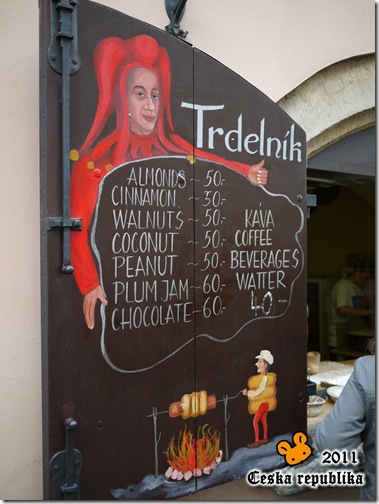 Trdelník
ALMONDS - 50.-
CINNAMON - 30.-
WALNUTS - 50.-
COCONUT - 50.-
PEANUT - 50.-
PLUM JAM - 60.-
CHOCOLATE - 60.-
KÁVA
COFFEE
BEVERAGES
WATTER
40.-
2011
Ceska republika